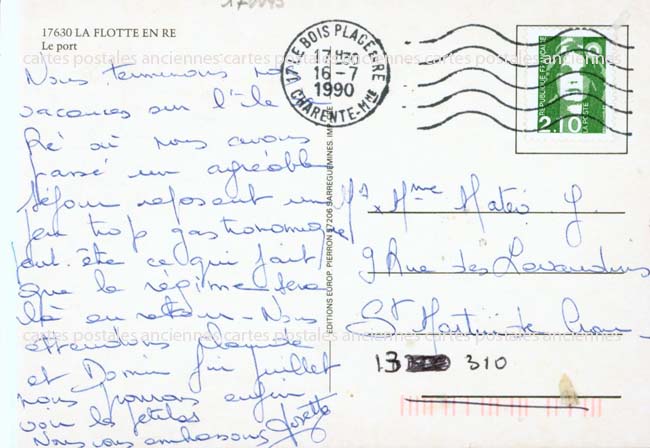 17630 LA FLOTTE EN RE
Le port
cartes postales anciennes cartes postales anciennes cartes postales anciennes
Nous terminons nos
vacances sur l'île de
Ré où nous avons
passé un agréable
séjour reposant un
peu trop gastronomique
peut-être ce qui fait
que le régime sera
là au retour - Nous
attendons
et Domin fin juillet
nous pourrons enfin
voir les petites
Nous vous embrassons Josette
17 LE BOIS PLAGE EN RE
17H30
16-7
1990
CHARENTE-Mme
REPUBLIQUE FRANÇAISE
2,10
LA POSTE
EDITIONS EUROP. PIERRON 57206 SARREGUEMINES. IMP.
Mr x Mme Mateo J.
9 Rue des Lavandins
St Martin de Crau
13 310
cartes postales anciennes cartes postales anciennes cartes postales anciennes